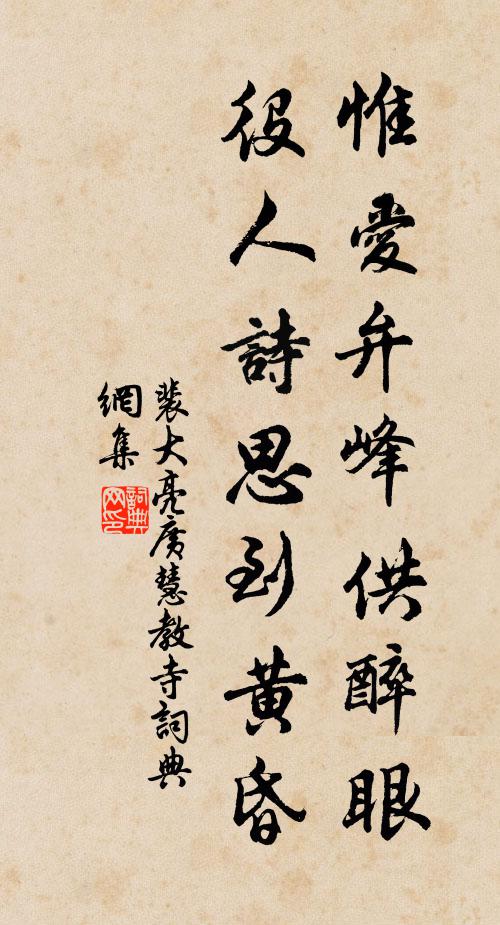 惟愛弁峰供醉眼
役人詩思到黄昏
裴大亮廣慧教寺詞典
網集
詞典
网印